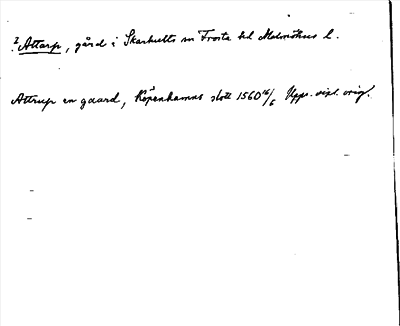 2. Attarp, gård i Skarhults sn Frosta hd Malmöhus l.
Attrup en gaard, Köpenhamns slott 1560 16/6 Upps. orig.